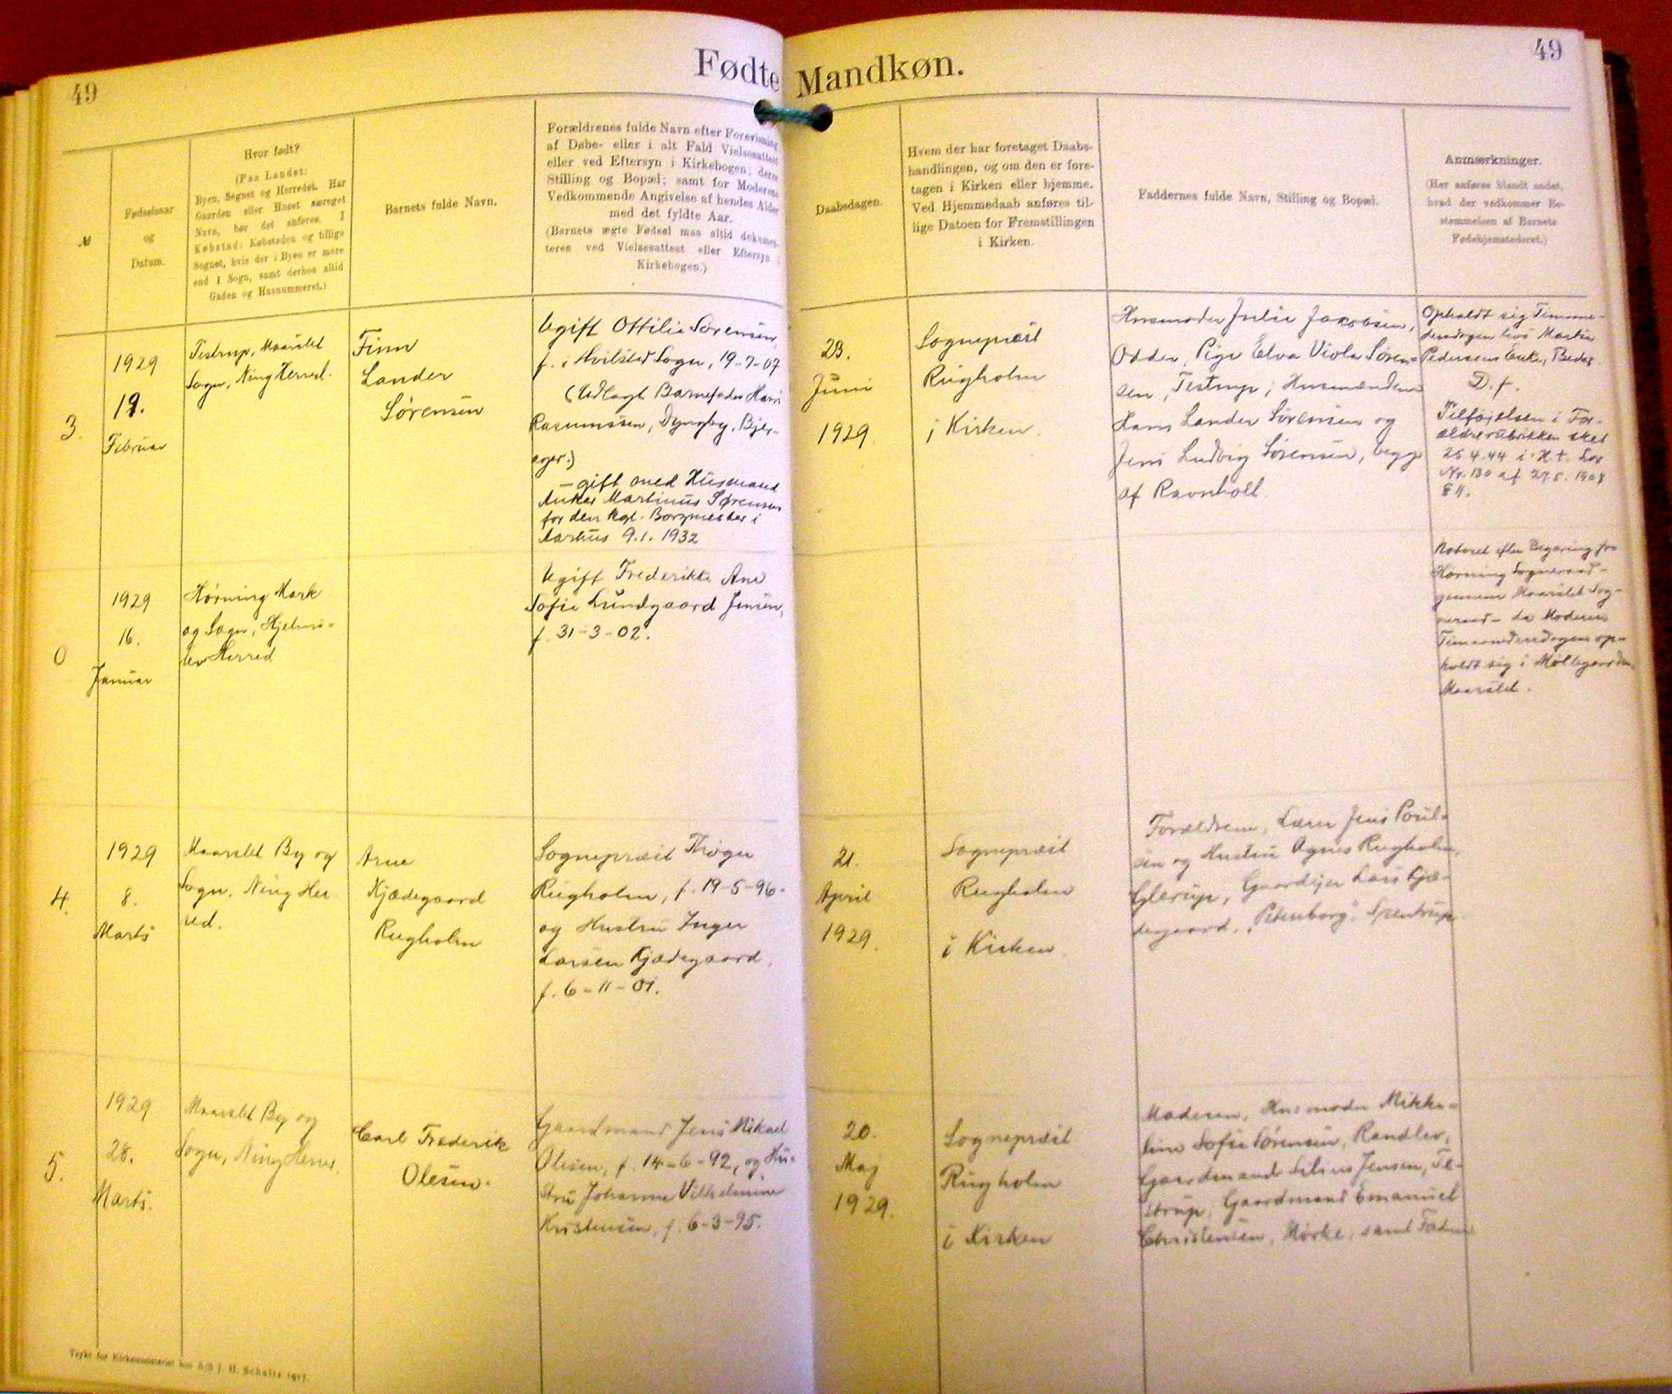 49
Fødte
Mandkøn.
49
№
Fødselsaar
og
Datum.
Hvor født?
(Paa Landet:
Byen, Sognet og Herredet. Har
Gaarden eller Huset særeget
Navn, bør det anføres. I
Købstad: Købstaden og tillige
Sognet, hvis der i Byen er mere
end 1 Sogn, samt derhos altid
Gaden og Husnummeret.)
Barnets fulde Navn.
Forældrenes fulde Navn efter Forevisning
af Døbe- eller i alt Fald Vielsesattest
eller ved Eftersyn i Kirkebogen; deres
Stilling og Bopæl; samt for Moderens
Vedkommende Angivelse af hendes Alder
med det fyldte Aar.
(Barnets ægte Fødsel maa altid dokumen-
teres ved Vielsesattest eller Eftersyn i
Kirkebogen.)
Daabsdagen.
Hvem der har foretaget Daabs-
handlingen, og om den er fore-
tagen i Kirken eller hjemme.
Ved Hjemmedaab anføres til-
lige Datoen for Fremstillingen
i Kirken.
Faddernes fulde Navn, Stilling og Bopæl.
Anmærkninger.
(Her anføres blandt andet,
hvad der vedkommer Be-
stemmelsen af Barnets
Fødehjemstederet.)
3.
1929
19.
Februar
Testrup, Maarslet
Sogn, Ning Herred.
Finn
Lander
Sørensen
Ugift Ottilie Sørensen,
f. i Hvilsted Sogn, 19-7-07
(Udlagt Barnefader Harri
Rasmussen, Dyngby, Bjer-
ager.)
- gift med Husmand
Anker Martinus Sørensen
for den kgl. Borgmester i
Aarhus 9.1. 1932
23.
Juni
1929.
Sognepræst
Rugholm
i Kirken.
Husmoder Julie Jacobsen,
Odder, Pige Elva Viola Søren-
sen, Testrup, Husmændene
Hans Lander Sørensen og
Jens Ludvig Sørensen, begge
af Ravnholt.
Opholdt sig Timaane-
dersdagen hos Martin
Pedersens Enke, Beder.
D. f.
Tilføjelsen i For-
ældrerubrikken sket
25.4.44 i H.t. Lov
Nr. 130 af 27.5. 1908
§ 11.
0
1929
16.
Januar
Hørning Mark
og Sogn, Hjelms-
lev Herred
Ugift Frederikke Ane
Sofie Lundgaard Jensen,
f. 31-3-02.
Noteret efter Begæring fra
Hørning Sogneraad
gennem Maarslet Sog-
neraad - da Moderen
Timaanedersdagen op-
holdt sig i Møllegaarden
Maarslet.
4.
1929
8.
Marts
Maarslet By og
Sogn, Ning Her-
red.
Arne
Kjædegaard
Rugholm
Sognepræst Trøger
Rugholm, f. 19-5-96.
og Hustru Inger
Larsen Kjædegaard.
f. 6-11-01.
21.
April
1929.
Sognepræst
Rugholm
i Kirken.
Forældrene, Lærer Jens Poul-
sen og Hustru Agnes Rugholm,
Glerup, Gaardejer Lars Kjæ-
degaard, "Petersborg", Spentrup.
5.
1929
28.
Marts.
Maarslet By og
Sogn, Ning Herred.
Carl Frederik
Olesen.
Gaardmand Jens Mikael
Olesen, f. 14-6-92, og Hu-
stru Johanne Vilhelmine
Kristensen, f. 6-3-95.
20.
Maj
1929.
Sognepræst
Rugholm
i Kirken
Moderen, Husmoder Mikke-
line Sofie Sørensen, Randlev,
Gaardmand Silius Jensen, Te-
strup, Gaardmand Emanuel
Christensen, Mørke, samt Faderen
Trykt for Kirkeministeriet hos A/S J. H. Schultz 1917.